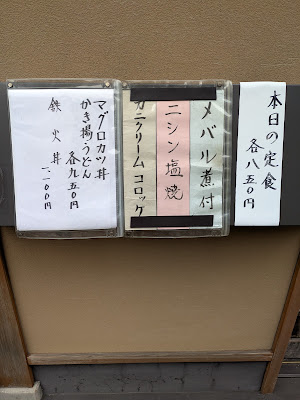 本日の定食
各八五〇円
メバル煮付
ニシン塩焼
カニクリームコロッケ
マグロカツ丼
かき揚・うどん
各九五〇円
鉄火丼
一、一〇〇円